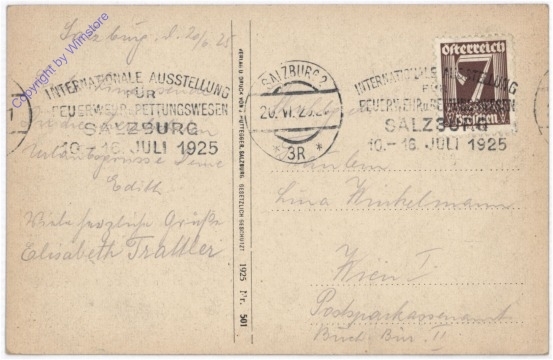 Copyright by Winstore
Salzburg, d. 20/6. 25
INTERNATIONALE AUSSTELLUNG
FÜR
FEUERWEHR u. RETTUNGSWESEN
SALZBURG
10. - 16. JULI 1925
Urlaubsgrüsse Deine
Edith
Viele herzliche Grüße
Elisabeth Trattler
VERLAG U. DRUCK VON HUTTEGGER, SALZBURG. GESETZLICH GESCHÜTZT
1925 Nr. 501
SALZBURG 2
20. VI. 25
* 3R *
Österreich
7
Groschen
INTERNATIONALE AUSSTELLUNG
FÜR
FEUERWEHR u. RETTUNGSWESEN
SALZBURG
10. - 16. JULI 1925
Fräulein
Lina Winkelmann
Wien I.
Postsparkassenamt
Buch. Bür. II